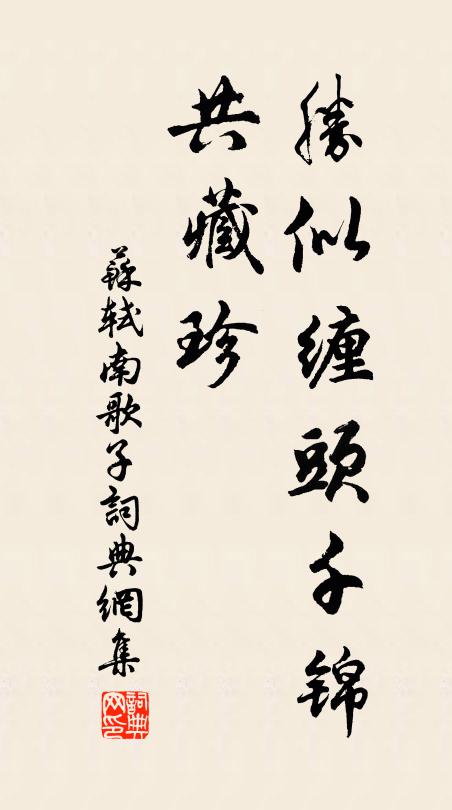 勝似缠頭千锦
共藏珍
蘇軾南歌子詞典網集
詞典
网印